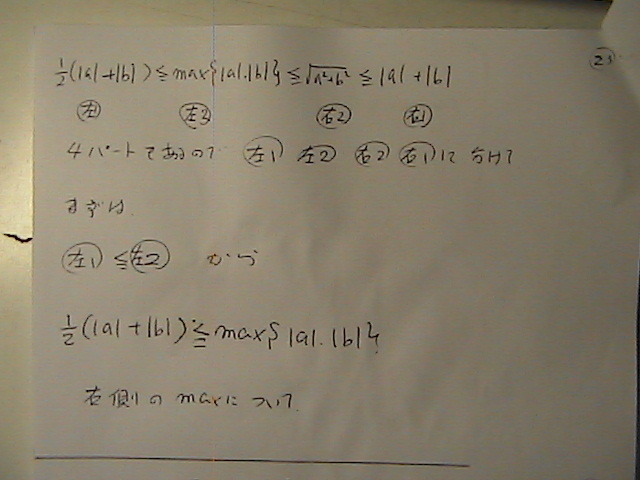 23
½(|a|+|b|) ≦ max{|a|.|b|} ≦ √a²+b² ≦ |a|+|b|
左1 左2 右2 右1
4パートであるので 左1 左2 右2 右1 に 分けて
まずは
左1 ≦ 左2 から
½(|a|+|b|) ≦ max{|a|.|b|}
右側の maxについて